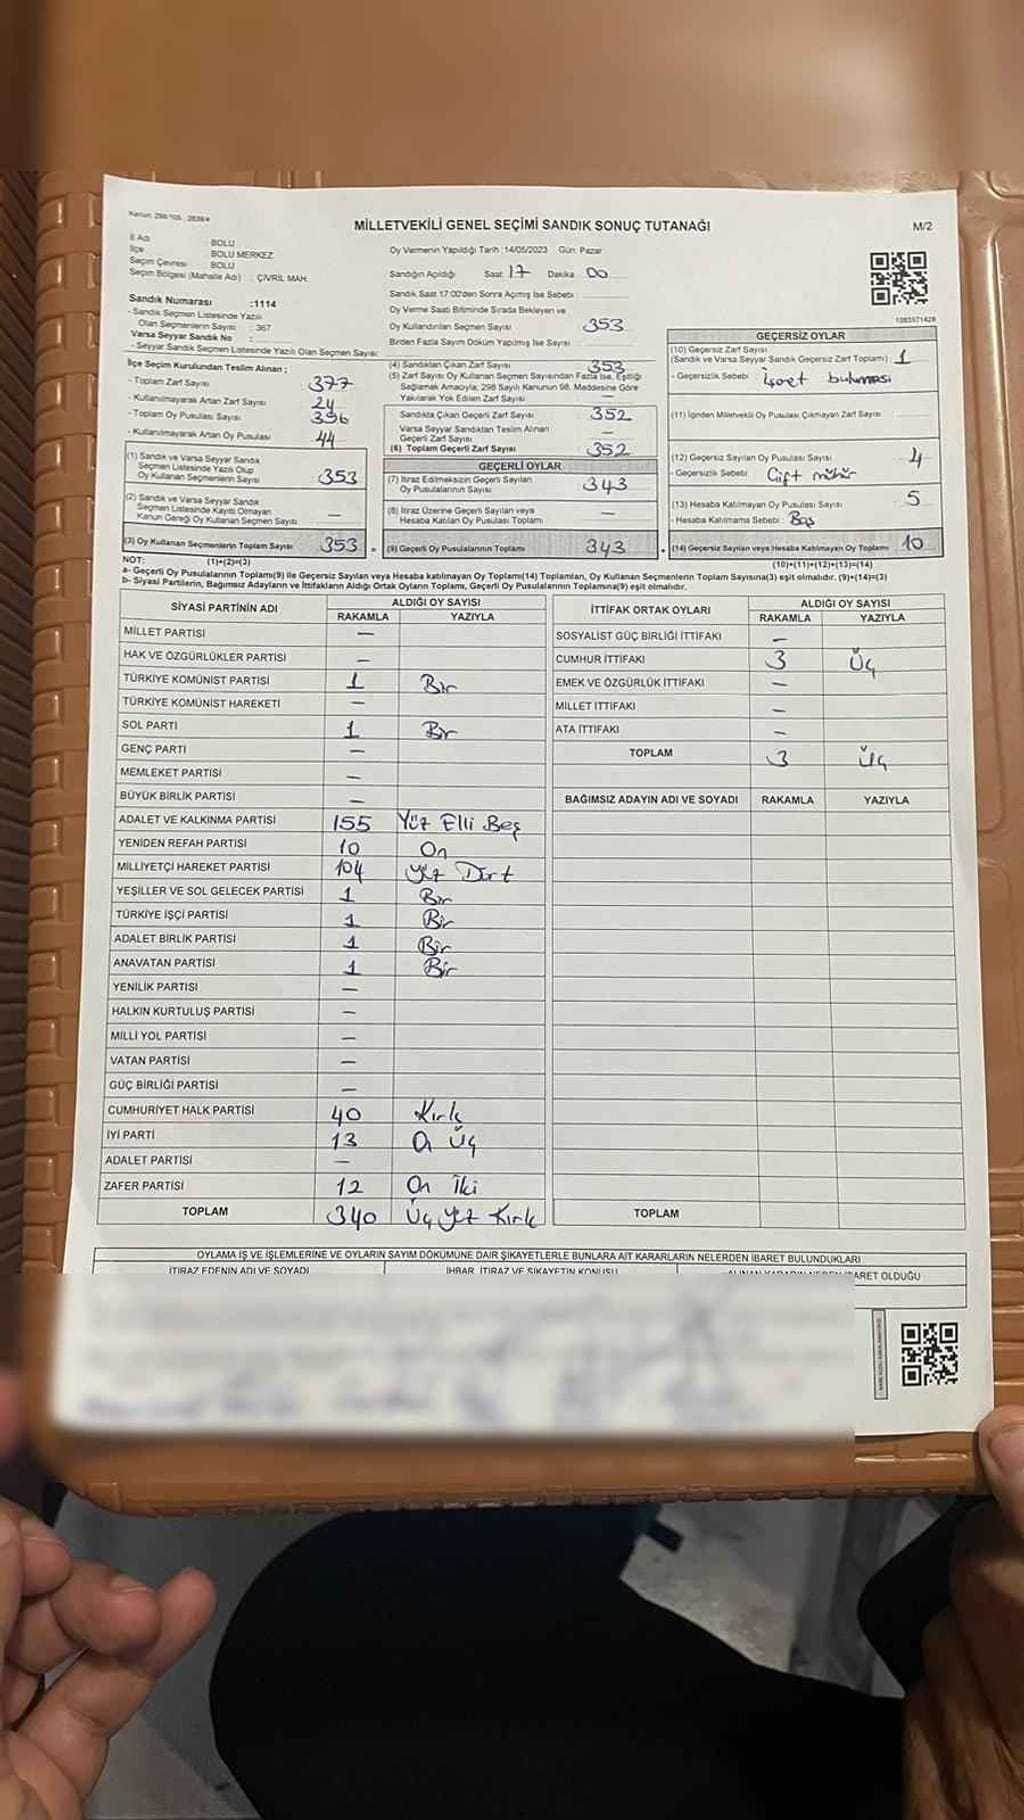 Kanun: 298/105, 2839/4
MİLLETVEKİLİ GENEL SEÇİMİ SANDIK SONUÇ TUTANAĞI
M/2
İl Adı : BOLU
İlçe : BOLU MERKEZ
Seçim Çevresi : BOLU
Seçim Bölgesi (Mahalle Adı) : ÇIVRIL MAH.
Oy Vermenin Yapıldığı Tarih :14/05/2023 Gün: Pazar
Sandığın Açıldığı Saat 17 Dakika 00
Sandık Saat 17:00'den Sonra Açılmış İse Sebebi
Sandık Numarası :1114
- Sandık Seçmen Listesinde Yazılı
Olan Seçmenlerin Sayısı : 367
Varsa Seyyar Sandık No :
- Seyyar Sandık Seçmen Listesinde Yazılı Olan Seçmen Sayısı:
Oy Verme Saati Bitiminde Sırada Bekleyen ve
Oy Kullandırılan Seçmen Sayısı 353
Birden Fazla Sayım Döküm Yapılmış İse Sayısı
1083571428
İlçe Seçim Kurulundan Teslim Alınan ;
- Toplam Zarf Sayısı 377
- Kullanılmayarak Artan Zarf Sayısı 24
- Toplam Oy Pusulası Sayısı 396
- Kullanılmayarak Artan Oy Pusulası 44
(1) Sandık ve Varsa Seyyar Sandık
Seçmen Listesinde Yazılı Olup
Oy Kullanan Seçmenlerin Sayısı 353
(2) Sandık ve Varsa Seyyar Sandık
Seçmen Listesinde Kayıtlı Olmayan
Kanun Gereği Oy Kullanan Seçmen Sayısı —
(3) Oy Kullanan Seçmenlerin Toplam Sayısı 353
(1)+(2)=(3)
(4) Sandıktan Çıkan Zarf Sayısı 353
(5) Zarf Sayısı Oy Kullanan Seçmen Sayısından Fazla İse, Eşitliği
Sağlamak Amacıyla; 298 Sayılı Kanunun 98. Maddesine Göre
Yakılarak Yok Edilen Zarf Sayısı —
Sandıkta Çıkan Geçerli Zarf Sayısı 352
Varsa Seyyar Sandıktan Teslim Alınan
Geçerli Zarf Sayısı —
(6) Toplam Geçerli Zarf Sayısı 352
GEÇERLİ OYLAR
(7) İtiraz Edilmeksizin Geçerli Sayılan
Oy Pusulalarının Sayısı 343
(8) İtiraz Üzerine Geçerli Sayılan veya
Hesaba Katılan Oy Pusulası Toplamı —
= (9) Geçerli Oy Pusulalarının Toplamı 343
GEÇERSİZ OYLAR
(10) Geçersiz Zarf Sayısı
(Sandık ve Varsa Seyyar Sandık Geçersiz Zarf Toplamı) 1
- Geçersizlik Sebebi : İşaret bulunması
(11) İçinden Milletvekili Oy Pusulası Çıkmayan Zarf Sayısı
(12) Geçersiz Sayılan Oy Pusulası Sayısı 4
- Geçersizlik Sebebi Çift mühür
(13) Hesaba Katılmayan Oy Pusulası Sayısı 5
- Hesaba Katılmama Sebebi : Boş
+ (14) Geçersiz Sayılan veya Hesaba Katılmayan Oy Toplamı 10
(10)+(11)+(12)+(13)=(14)
NOT:
a- Geçerli Oy Pusulalarının Toplamı(9) ile Geçersiz Sayılan veya Hesaba katılmayan Oy Toplamı(14) Toplamları, Oy Kullanan Seçmenlerin Toplam Sayısına(3) eşit olmalıdır. (9)+(14)=(3)
b- Siyasi Partilerin, Bağımsız Adayların ve İttifakların Aldığı Ortak Oyların Toplamı, Geçerli Oy Pusulalarının Toplamına(9) eşit olmalıdır.
SİYASİ PARTİNİN ADI ALDIĞI OY SAYISI
RAKAMLA YAZIYLA
MİLLET PARTİSİ —
HAK VE ÖZGÜRLÜKLER PARTİSİ —
TÜRKİYE KOMÜNİST PARTİSİ 1 Bir
TÜRKİYE KOMÜNİST HAREKETİ —
SOL PARTİ 1 Bir
GENÇ PARTİ —
MEMLEKET PARTİSİ —
BÜYÜK BİRLİK PARTİSİ —
ADALET VE KALKINMA PARTİSİ 155 Yüz Elli Beş
YENİDEN REFAH PARTİSİ 10 On
MİLLİYETÇİ HAREKET PARTİSİ 104 Yüz Dört
YEŞİLLER VE SOL GELECEK PARTİSİ 1 Bir
TÜRKİYE İŞÇİ PARTİSİ 1 Bir
ADALET BİRLİK PARTİSİ 1 Bir
ANAVATAN PARTİSİ 1 Bir
YENİLİK PARTİSİ —
HALKIN KURTULUŞ PARTİSİ —
MİLLİ YOL PARTİSİ —
VATAN PARTİSİ —
GÜÇ BİRLİĞİ PARTİSİ —
CUMHURİYET HALK PARTİSİ 40 Kırk
İYİ PARTİ 13 On Üç
ADALET PARTİSİ —
ZAFER PARTİSİ 12 On İki
TOPLAM 340 Üç Yüz Kırk
İTTİFAK ORTAK OYLARI ALDIĞI OY SAYISI
RAKAMLA YAZIYLA
SOSYALİST GÜÇ BİRLİĞİ İTTİFAKI —
CUMHUR İTTİFAKI 3 Üç
EMEK VE ÖZGÜRLÜK İTTİFAKI —
MİLLET İTTİFAKI —
ATA İTTİFAKI —
TOPLAM 3 Üç
BAĞIMSIZ ADAYIN ADI VE SOYADI RAKAMLA YAZIYLA
TOPLAM
OYLAMA İŞ VE İŞLEMLERİNE VE OYLARIN SAYIM DÖKÜMÜNE DAİR ŞİKAYETLERLE BUNLARA AİT KARARLARIN NELERDEN İBARET BULUNDUKLARI
İTİRAZ EDENİN ADI VE SOYADI İHBAR, İTİRAZ VE ŞİKAYETİN KONUSU